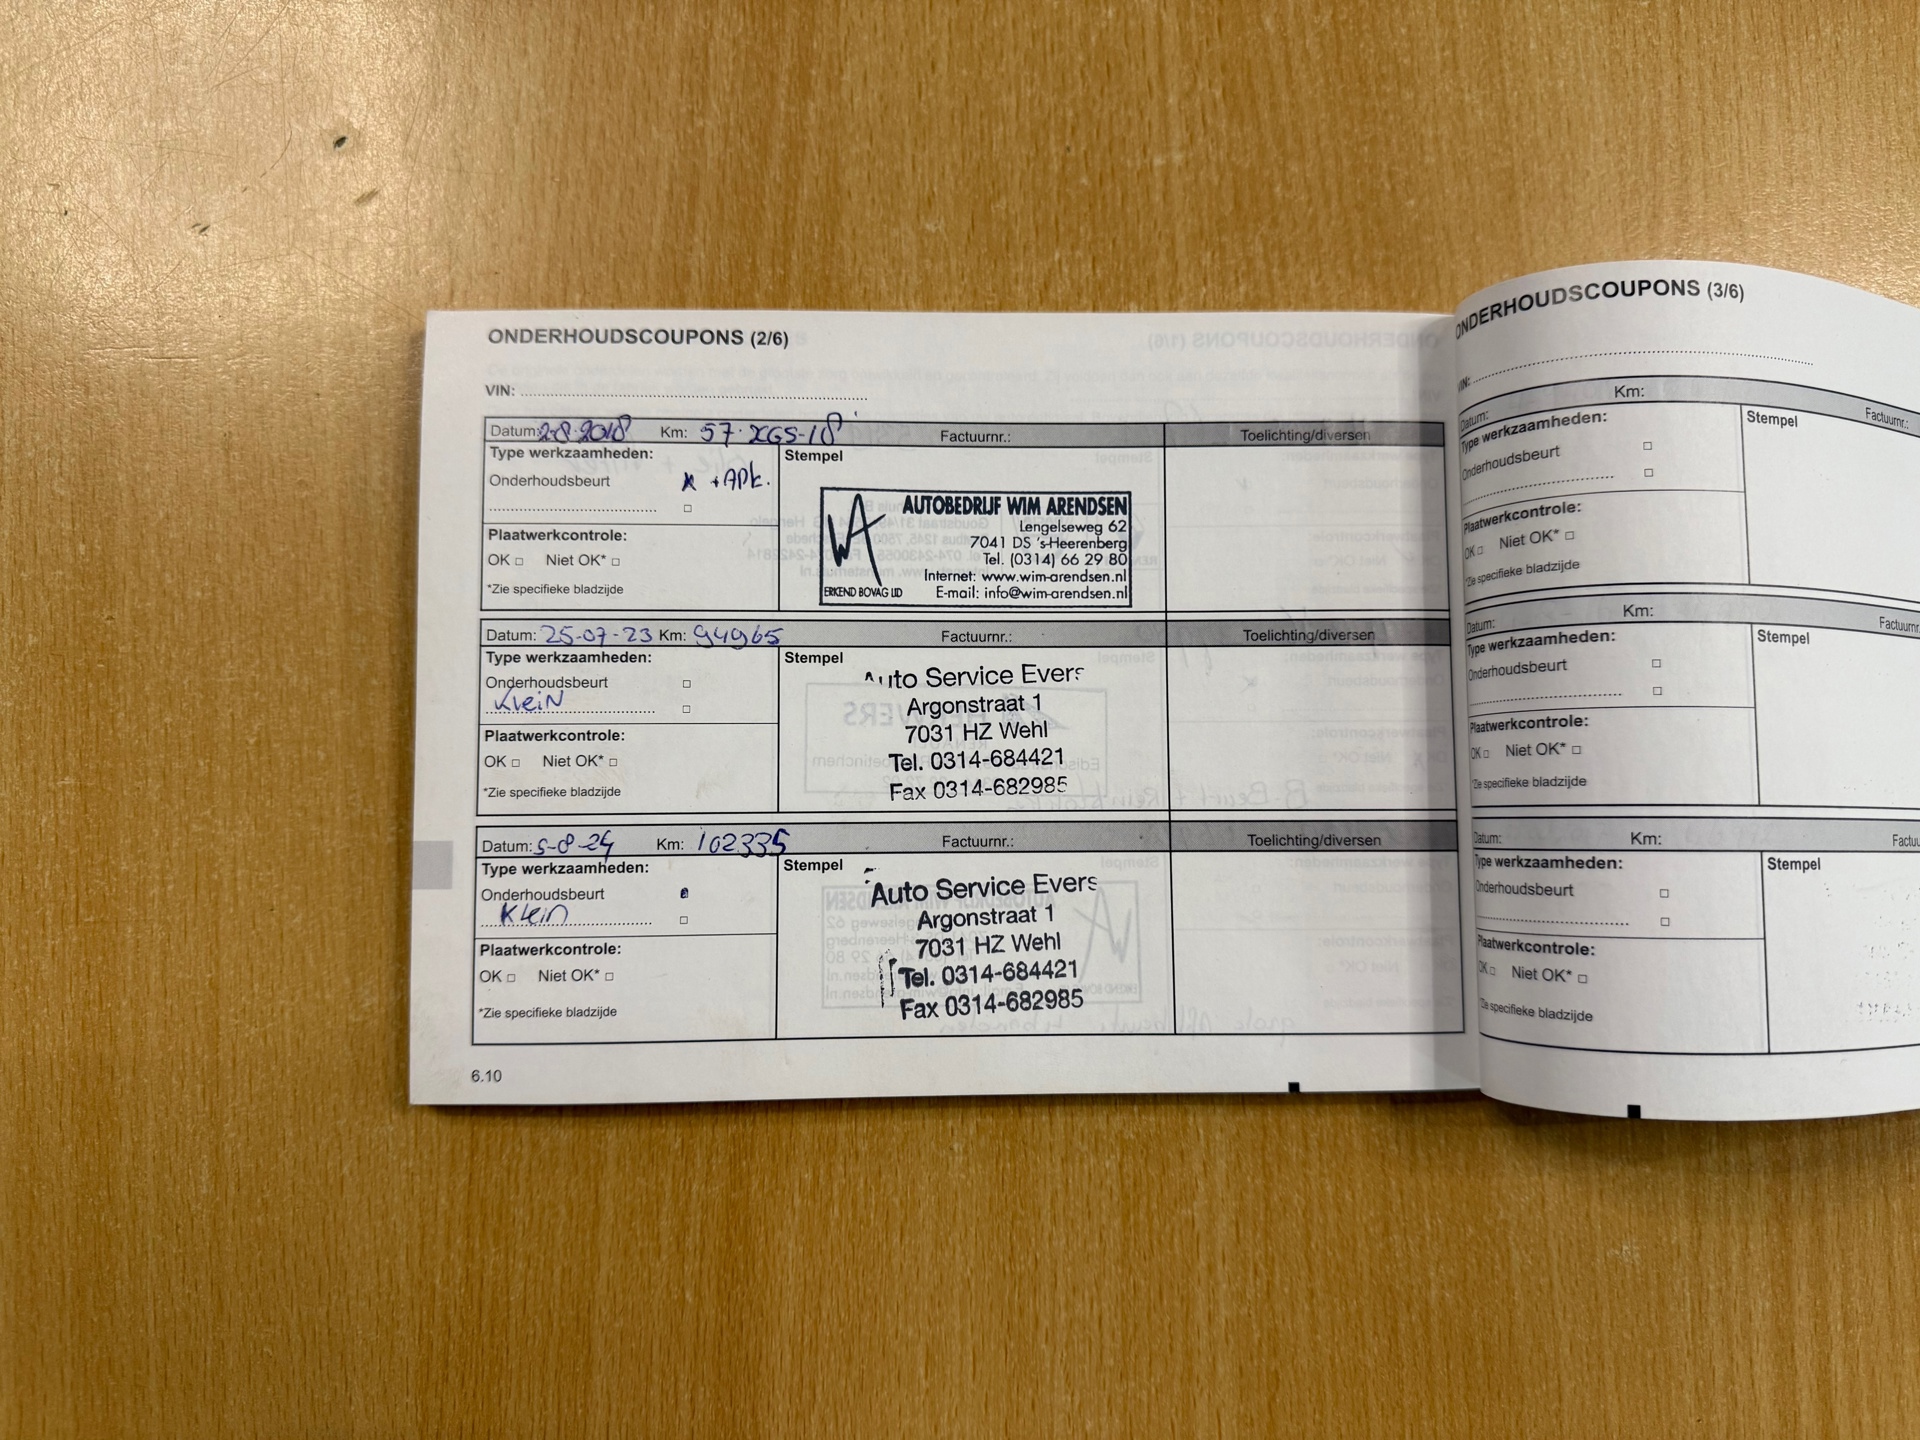 ONDERHOUDSCOUPONS (2/6)
VIN:
Datum: 2-8-2018 Km: 57-XGS-18 Factuurnr.: Toelichting/diversen
Type werkzaamheden: Stempel
Onderhoudsbeurt x + APK.
AUTOBEDRIJF WIM ARENDSEN
Lengelseweg 62
7041 DS 's-Heerenberg
Tel. (0314) 66 29 80
Internet: www.wim-arendsen.nl
ERKEND BOVAG LID E-mail: info@wim-arendsen.nl
Plaatwerkcontrole:
OK □ Niet OK* □
*Zie specifieke bladzijde
Datum: 25-07-23 Km: 94965 Factuurnr.: Toelichting/diversen
Type werkzaamheden: Stempel
Onderhoudsbeurt □
Klein □
Auto Service Evers
Argonstraat 1
7031 HZ Wehl
Tel. 0314-684421
Fax 0314-682985
Plaatwerkcontrole:
OK □ Niet OK* □
*Zie specifieke bladzijde
Datum: 5-8-24 Km: 102335 Factuurnr.: Toelichting/diversen
Type werkzaamheden: Stempel
Onderhoudsbeurt
Klein □
Auto Service Evers
Argonstraat 1
7031 HZ Wehl
Tel. 0314-684421
Fax 0314-682985
Plaatwerkcontrole:
OK □ Niet OK* □
*Zie specifieke bladzijde
6.10
ONDERHOUDSCOUPONS (3/6)
VIN:
Datum: Km: Factuurnr.:
Type werkzaamheden: Stempel
Onderhoudsbeurt □
□
Plaatwerkcontrole:
OK □ Niet OK* □
*Zie specifieke bladzijde
Datum: Km: Factuurnr.
Type werkzaamheden: Stempel
Onderhoudsbeurt □
□
Plaatwerkcontrole:
OK □ Niet OK* □
*Zie specifieke bladzijde
Datum: Km: Factuu
Type werkzaamheden: Stempel
Onderhoudsbeurt □
□
Plaatwerkcontrole:
OK □ Niet OK* □
*Zie specifieke bladzijde